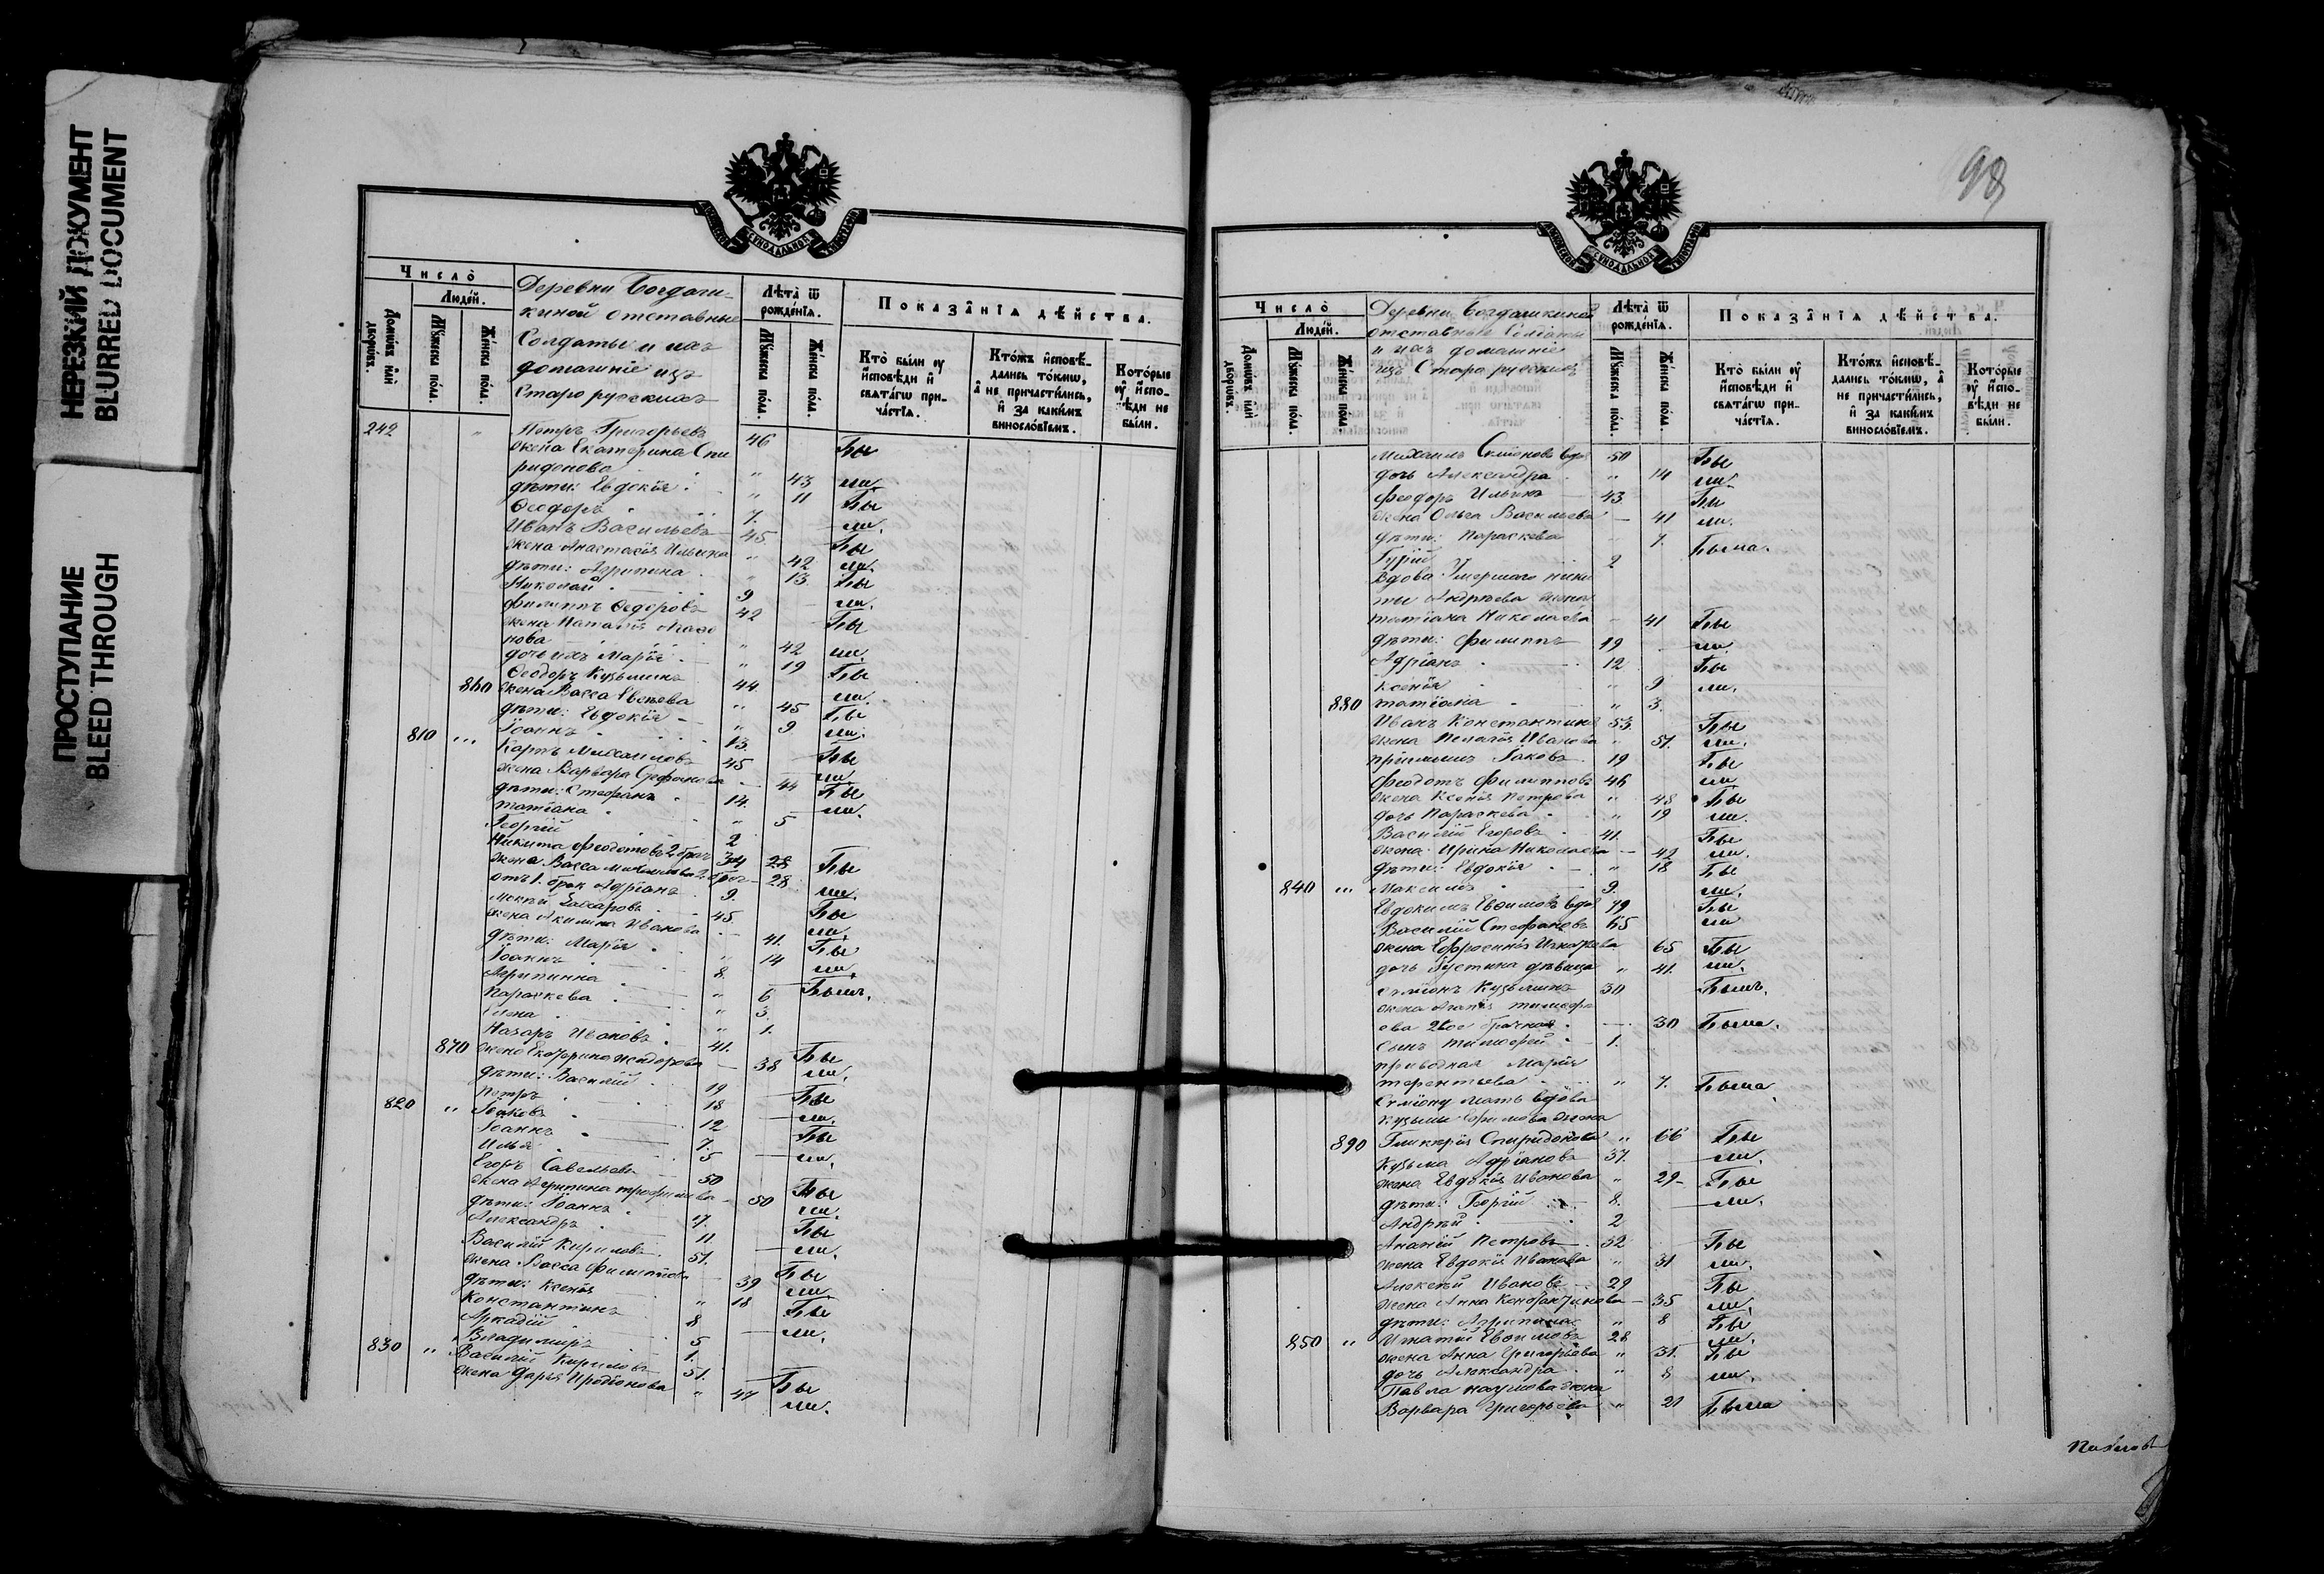 НЕРЕЗКИЙ ДОКУМЕНТ
BLURRED DOCUMENT
ПРОСТУПАНИЕ
BLEED THROUGH
Число̀
Домѡ́въ и҆лѝ дворѡ́въ.
Люде́й.
Мꙋ́жеска по́ла.
Же́нска по́ла.
Деревни Богдаш-
киной отставные
Солдаты и ихъ
домашніе изъ
Старо русскихъ
Лѣта̀ ѿ рожде́нїѧ.
Мꙋ́жеска по́ла.
Же́нска по́ла.
Показа̑нїѧ дѣ́йства.
Кто̀ бы́ли ᲂу҆ и҆сповѣ́ди и҆ свѧта́гѡ при-ча́стїѧ.
Кто́жъ и҆сповѣ́-дались то́кмѡ, а҆ не причасти́лись, и҆ за каки́мъ винослові́емъ.
Кото́рые ᲂу҆ и҆спо-вѣ́ди не бы́ли.
242 " Петръ Григорьевъ 46 Бы
жена Екатерина Спи
ридонова " 43 ли.
дѣти: Евдокія " 11 Бы
Ѳеодоръ 7. ли.
Иванъ Васильевъ 45 Бы
жена Анастасія Ильина " 42 ли.
дѣти: Агрипина " 13. Бы
Николай 9 ли.
Филиппъ Ѳедоровъ 42 Бы
жена Наталія
нова " 42 ли.
дочь ихъ Марія " 19 Бы
Ѳеодоръ Кузьминъ 44. ли.
860 жена Васса " 45 Бы
дѣти: Евдокія " 9 ли.
810 Іоаннъ 13. Бы
Карпъ Михаиловъ 45 ли.
жена Варвара Стефанова 44 Бы
дѣти: Стефанъ 14. ли.
Татіана " 5
Георгій 2
Никита Ѳеодотовъ 2 брач 34 28 Бы
жена Васса 28 ли.
отъ 1. брак Адріанъ 9. Бы
Захаровъ 45 ли.
жена Акилина Иванова 41. Бы
дѣти: Марія " 14 ли.
Іоаннъ 8. Былъ.
Агрипинна " 6
Параскева " 3.
Елена " 1.
Назаръ Ивановъ 41. Бы
870 жена Екатерина 38 ли.
дѣти: Василій 19 Бы
Петръ 18 ли.
820 " Іаковъ 12 Бы
Іоаннъ 7. ли.
Илья 5
Егоръ Савельевъ 50 Бы
жена Агрипина Трофимова 50 ли.
дѣти: Іоаннъ 17. Бы
Александръ 11. ли.
Василій Кириловъ 51. Бы
жена Васса Филиппова 39 ли.
дѣти: Ксенія " 18 Бы
Константинъ 8 ли.
Аркадій 5
Владимиръ 1.
830 " Василій Кириловъ 51. Бы
жена Дарья Иродіонова " 47 ли.
98
Число̀
Домѡ́въ и҆лѝ дворѡ́въ.
Люде́й.
Мꙋ́жеска по́ла.
Же́нска по́ла.
Деревни Богдашкиной
отставные Солдаты
и ихъ домашніе
изъ Старо русскихъ
Лѣта̀ ѿ рожде́нїѧ.
Мꙋ́жеска по́ла.
Же́нска по́ла.
Показа̑нїѧ дѣ́йства.
Кто̀ бы́ли ᲂу҆ и҆сповѣ́ди и҆ свѧта́гѡ при-ча́стїѧ.
Кто́жъ и҆сповѣ́-дались то́кмѡ, а҆ не причасти́лись, и҆ за каки́мъ винослові́емъ.
Кото́рые ᲂу҆ и҆спо-вѣ́ди не бы́ли.
Михаилъ Семеновъ вдов 50 Бы
дочь Александра " 14 ли.
Феодоръ Ильинъ 43 Бы
жена Ольга Васильева 41 ли.
дѣти: Параскева " 7. Была.
Гурій 2
Вдова умершаго Ники
ты Андреева жена
Татіана Николаева " 41 Бы
дѣти: Филиппъ 19 ли.
Адріанъ 12 Бы
Ксенія " 9 ли.
880 Татіана " 3.
Иванъ Константинов 53. Бы
жена Пелагія Иванова " 51. ли.
пріемышъ Іаковъ 19 Бы
Феодотъ Филипповъ 46 ли
жена Ксенія Петрова " 48 Бы
дочь Параскева " 19 ли.
Василій Егоровъ 41. Бы
жена Ирина Николаева 42 ли.
дѣти: Евдокія " 18 Бы
840 Максимъ 9. ли.
Евдокимъ Евѳимовъ вдов 49 Бы
Василій Стефановъ 65 ли
жена Ефросинія Игнатьева 65 Бы
дочь Іустина дѣвица " 41. ли.
Семіонъ Кузьминъ 30 Былъ.
жена Агапія Тимоѳе
ева 2го брачная 30 Была.
сынъ Тимоѳей 1.
приводная Марія
Терентьева " 7. Была
Семіону мать вдова
Кузьмы Ефимова жена
890 Гликерія Спиридонова " 66 Бы
Кузьма Адріановъ 37. ли.
жена Евдокія Иванова " 29 Бы
дѣти: Георгій 8. ли.
Андрей 2
Ананій Петровъ 32 Бы
жена Евдокія Иванова " 31 ли.
Алексѣй Ивановъ 29 Бы
жена Анна Константинова 35 ли.
дѣти: Агрипина " 8 Бы
850 " Игнатій Евѳимовъ 28 ли.
жена Анна Григорьева " 31. Бы
дочь Александра " 8 ли.
Павла Наумова жена
Варвара Григорьева " 21 Была